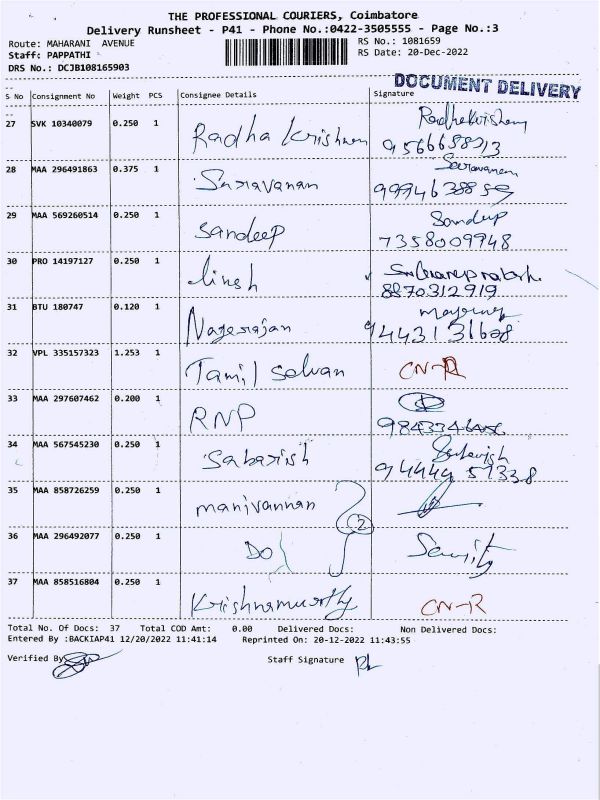 THE PROFESSIONAL COURIERS, Coimbatore
Delivery Runsheet - P41 - Phone No.:0422-3505555 - Page No.:3
Route: MAHARANI AVENUE
RS No.: 1081659
Staff: PAPPATHI
RS Date: 20-Dec-2022
DRS No.: DCJB108165903
DOCUMENT DELIVERY
S No Consignment No Weight PCS Consignee Details Signature
27 SVK 10340079 0.250 1 Radha Krishnan Radhakrishnan
28 MAA 296491863 0.375 1 Saravanan Saravanan
29 MAA 569260514 0.250 1 Sandeep Sandeep
7358009948
30 PRO 14197127 0.250 1
8870312919
31 BTU 180747 0.120 1 Nagarajan
32 VPL 335157323 1.253 1 Tamil Selvan CN-R
33 MAA 297607462 0.200 1 RNP
34 MAA 567545230 0.250 1 Sabarish
94444 57338
35 MAA 858726259 0.250 1 manivannan
2
36 MAA 296492077 0.250 1 DO
37 MAA 858516804 0.250 1 Krishnamurthy CN-R
Total No. Of Docs: 37 Total COD Amt: 0.00 Delivered Docs: Non Delivered Docs:
Entered By :BACKIAP41 12/20/2022 11:41:14 Reprinted On: 20-12-2022 11:43:55
Verified By
Staff Signature